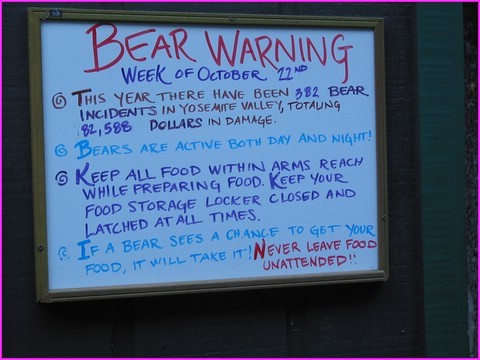 BEAR WARNING
WEEK OF OCTOBER 22ND
THIS YEAR THERE HAVE BEEN 382 BEAR
INCIDENTS IN YOSEMITE VALLEY, TOTALING
82,588 DOLLARS IN DAMAGE.
BEARS ARE ACTIVE BOTH DAY AND NIGHT!
KEEP ALL FOOD WITHIN ARMS REACH
WHILE PREPARING FOOD. KEEP YOUR
FOOD STORAGE LOCKER CLOSED AND
LATCHED AT ALL TIMES.
IF A BEAR SEES A CHANCE TO GET YOUR
FOOD, IT WILL TAKE IT! NEVER LEAVE FOOD
UNATTENDED!!